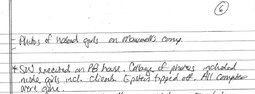 6
- Photos of naked girls on Maxwell's comp
* S/W executed on PB house. Collage of photos included
nude girls incl. clients. Epstein tipped off. All computers
were gone.